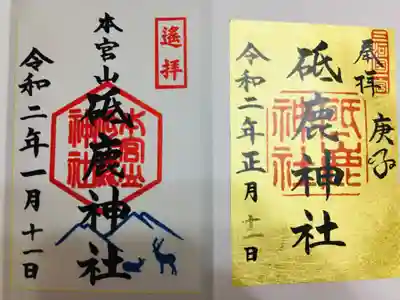 遙拝
本宮山
砥鹿神社
本宮山
砥鹿
神社
令和二年一月十一日
三河國一宮
奉拝
庚子
砥鹿神社
砥鹿
神社
令和二年正月十一日